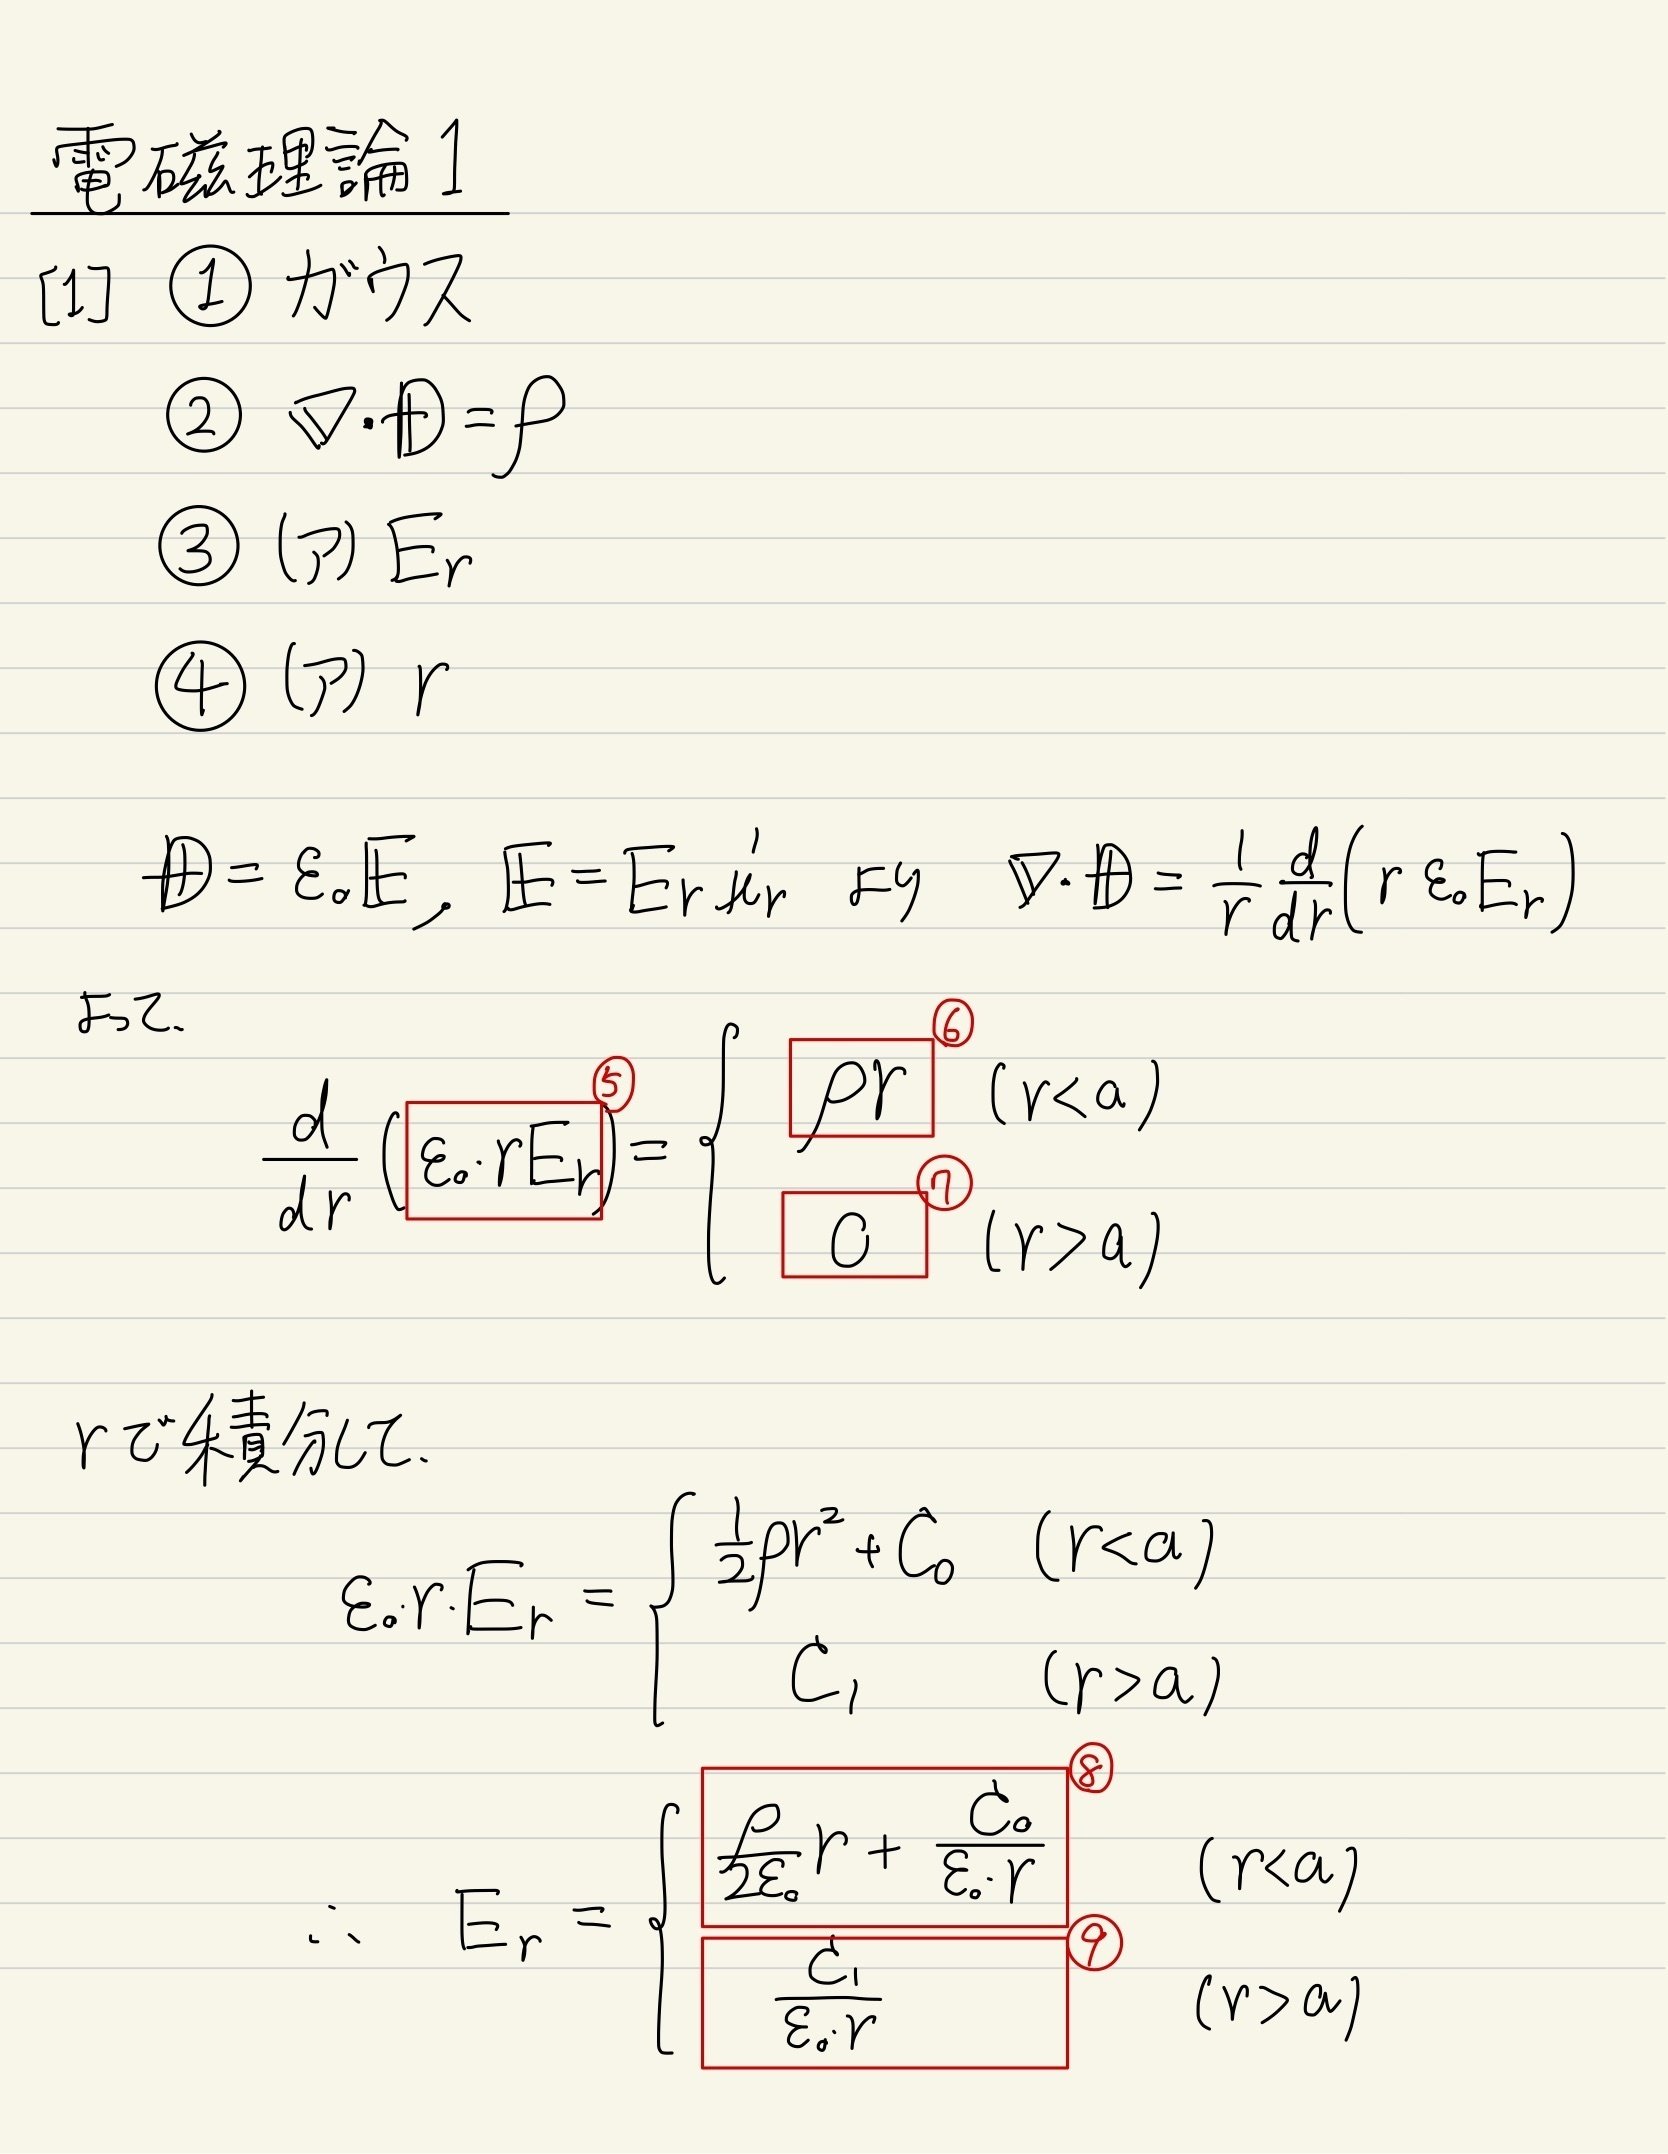 電磁理論1
[1] ① ガウス
② ∇・D = ρ
③ (ア) Er
④ (ア) r
D = ε₀E, E = Er ir より ∇・D = 1/r d/dr (r ε₀Er)
よって.
d/dr (ε₀・rEr) = { ρr (r<a) ⑤ ⑥
0 (r>a) ⑦
rで積分して.
ε₀・r・Er = { 1/2 ρr² + C₀ (r<a)
C₁ (r>a)
∴ Er = { ρ/2ε₀ r + C₀/ε₀・r (r<a) ⑧
C₁/ε₀・r (r>a) ⑨